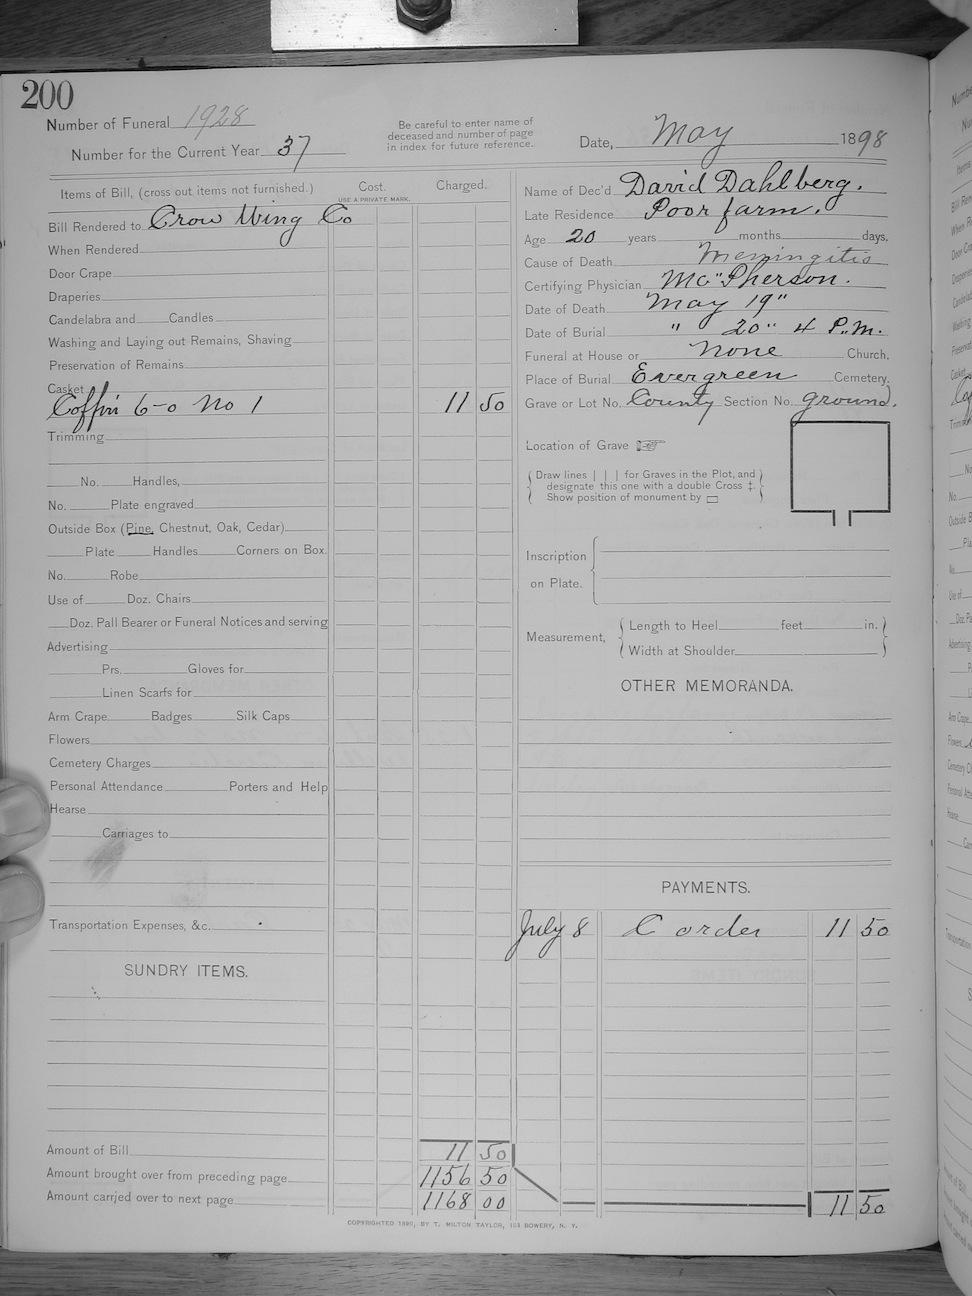 200
Number of Funeral 1928
Number for the Current Year 37
Be careful to enter name of
deceased and number of page
in index for future reference.
Date, May 1898
Items of Bill, (cross out items not furnished.) Cost. Charged.
USE A PRIVATE MARK.
Bill Rendered to Crow Wing Co
When Rendered
Door Crape
Draperies
Candelabra and Candles
Washing and Laying out Remains, Shaving
Preservation of Remains
Casket
Coffin 6-0 No 1 11 50
Trimming
No. Handles,
No. Plate engraved
Outside Box (Pine, Chestnut, Oak, Cedar)
Plate Handles Corners on Box.
No. Robe
Use of Doz. Chairs
Doz. Pall Bearer or Funeral Notices and serving
Advertising
Prs. Gloves for
Linen Scarfs for
Arm Crape Badges Silk Caps
Flowers
Cemetery Charges
Personal Attendance Porters and Help
Hearse
Carriages to
Transportation Expenses, &c.
SUNDRY ITEMS.
Amount of Bill 11 50
Amount brought over from preceding page 1156 50
Amount carried over to next page 1168 00
Name of Dec'd David Dahlberg.
Late Residence Poor farm.
Age 20 years months days.
Cause of Death Meningitis
Certifying Physician Mc"Pherson.
Date of Death May 19"
Date of Burial " 20" 4 P.M.
Funeral at House or None Church.
Place of Burial Evergreen Cemetery.
Grave or Lot No. County Section No. ground.
Location of Grave
Draw lines | | | for Graves in the Plot, and
designate this one with a double Cross ‡.
Show position of monument by ▭
Inscription
on Plate.
Measurement, Length to Heel feet in.
Width at Shoulder
OTHER MEMORANDA.
PAYMENTS.
July 8 C order 11 50
11 50
COPYRIGHTED 1890, BY T. MILTON TAYLOR, 151 BOWERY, N. Y.